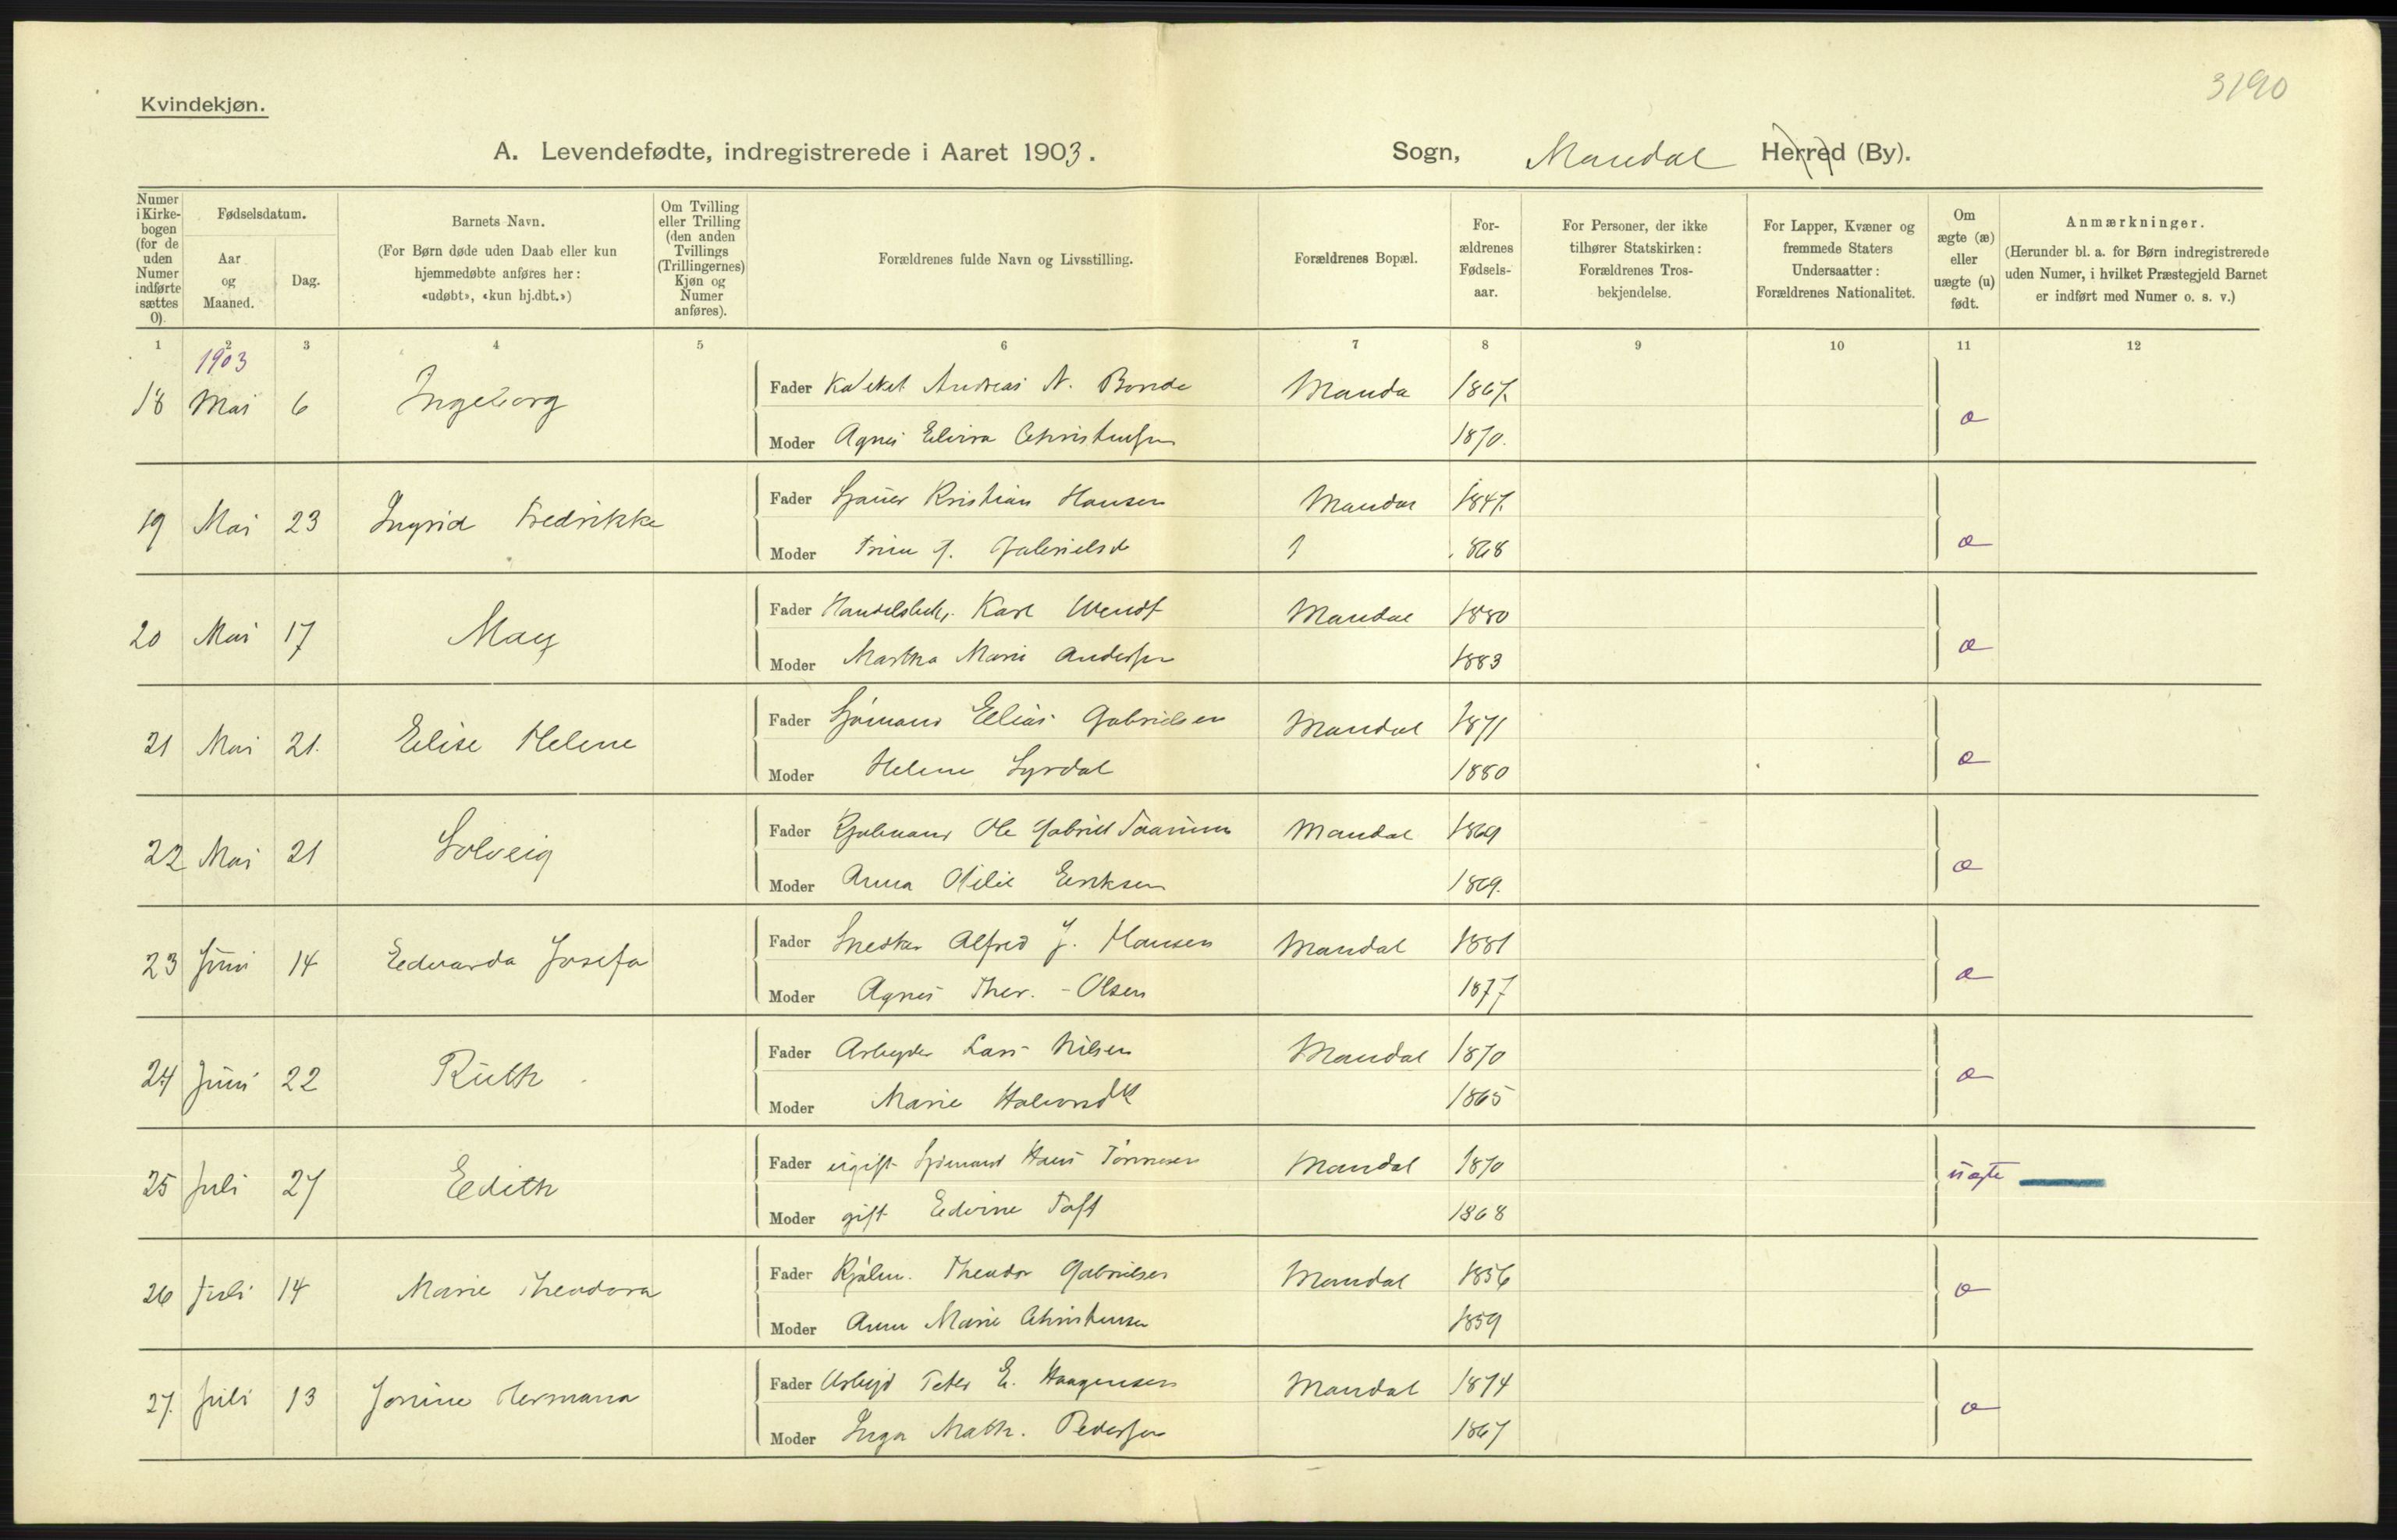 3190
Kvindekjøn.
A. Levendefødte, indregistrerede i Aaret 1903. Sogn, Mandal Herred (By).
Numer i Kirkebogen (for de uden Numer indførte sættes 0).
Fødselsdatum.
Aar og Maaned.
Dag.
Barnets Navn.
(For Børn døde uden Daab eller kun hjemmedøbte anføres her: «udøbt», «kun hj.dbt.»)
Om Tvilling eller Trilling (den anden Tvillings (Trillingernes) Kjøn og Numer anføres).
Forældrenes fulde Navn og Livsstilling.
Forældrenes Bopæl.
Forældrenes Fødselsaar.
For Personer, der ikke tilhører Statskirken: Forældrenes Trosbekjendelse.
For Lapper, Kvæner og fremmede Staters Undersaatter: Forældrenes Nationalitet.
Om ægte (æ) eller uægte (u) født.
Anmærkninger.
(Herunder bl. a. for Børn indregistrerede uden Numer, i hvilket Præstegjeld Barnet er indført med Numer o. s. v.)
1 2 3 4 5 6 7 8 9 10 11 12
1903
18 Mai 6 Ingeborg Fader Andreas N. Bonde Manda 1867. æ
Moder Agnes Elvira Christensen 1870.
19 Mai 23 Ingrid Fredrikke Fader Kristian Hansen Mandal 1847. æ
Moder Trine J. Gabrielsd 868
20 Mai 17 May Fader Karl Wendt Mandal 1880 æ
Moder Martha Marie Andersen 1883
21 Mai 21. Elise Helene Fader Sjømand Elias Gabrielsen Mandal 1871 æ
Moder Helene Syrdal 1880
22 Mai 21 Solveig Fader Ole Gabriel Mandal 1869 æ
Moder Anna Otilie Eriksen 1869.
23 Juni 14 Edvarda Josefa Fader Snedker Alfred J. Hansen Mandal 1881 æ
Moder Agnes Ther. - Olsen 1877
24 Juni 22 Ruth Fader Arbeyder Lars Nilsen Mandal 1870 æ
Moder Marie 1865
25 Juli 27 Edith Fader ugift Sjømand Hans Tønnesen Mandal 1870 uægte
Moder gift Edvine Toft 1868
26 Juli 14 Marie Theodora Fader Theodor Gabrielsen Mandal 1856 æ
Moder Anne Marie Christensen 1859
27. Juli 13 Jonine Hermana Fader Arbejd Peter E. Haagensen Mandal 1874 æ
Moder Inga Math. Pedersen 1867